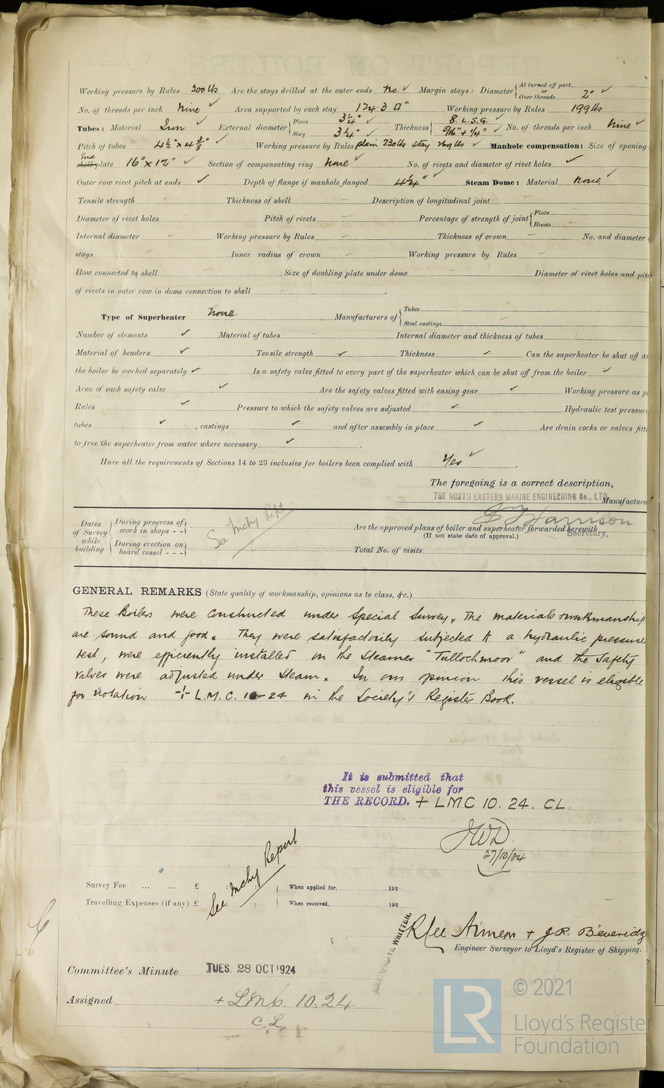 Working pressure by Rules 200 lbs Are the stays drilled at the outer ends No. Margin stays: Diameter { At turned off part, or Over threads 2"
No. of threads per inch Nine Area supported by each stay Working pressure by Rules 199 lbs
Tubes: Material Iron External diameter { Plain 3¼" Stay 3¼" Thickness { 8 L.S.G. 5/16" & 1/4" No. of threads per inch Nine
Pitch of tubes Working pressure by Rules plain 230 lbs stay Manhole compensation: Size of opening
End shell plate 16" x 12" Section of compensating ring None No. of rivets and diameter of rivet holes
Outer row rivet pitch at ends Depth of flange if manhole flanged Steam Dome: Material None
Tensile strength Thickness of shell Description of longitudinal joint
Diameter of rivet holes Pitch of rivets Percentage of strength of joint { Plate Rivets
Internal diameter Working pressure by Rules Thickness of crown No. and diameter
stays Inner radius of crown Working pressure by Rules
How connected to shell Size of doubling plate under dome Diameter of rivet holes and pitc
of rivets in outer row in dome connection to shell
Type of Superheater None Manufacturers of { Tubes Steel castings
Number of elements Material of tubes Internal diameter and thickness of tubes
Material of headers Tensile strength Thickness Can the superheater be shut off a
the boiler be worked separately Is a safety valve fitted to every part of the superheater which can be shut off from the boiler
Area of each safety valve Are the safety valves fitted with easing gear Working pressure as p
Rules Pressure to which the safety valves are adjusted Hydraulic test pressure
tubes , castings and after assembly in place Are drain cocks or valves fitt
to free the superheater from water where necessary
Have all the requirements of Sections 14 to 23 inclusive for boilers been complied with Yes
The foregoing is a correct description,
THE NORTH EASTERN MARINE ENGINEERING Co., LTD. Manufacture
Harrison
Secretary.
Dates of Survey while building { During progress of work in shops - - } { During erection on board vessel - - - }
See Mchy Rpt
Are the approved plans of boiler and superheater forwarded herewith
(If not state date of approval.)
Total No. of visits
GENERAL REMARKS (State quality of workmanship, opinions as to class, &c.)
These Boilers were constructed under Special Survey, the materials & workmanship
are sound and good. They were satisfactorily subjected to a hydraulic pressure
test, were efficiently installed on the Steamer "Tullochmoor" and the Safety
valves were adjusted under steam. In our opinion this vessel is eligible
for notation + L.M.C. 10-24 in the Society's Register Book.
It is submitted that
this vessel is eligible for
THE RECORD. + LMC 10.24. CL.
JWD.
27/10/24
Survey Fee ... ... £ When applied for, 192
Travelling Expenses (if any) £ When received, 192
See Mchy Report
J.R. Beveridge
Engineer Surveyor to Lloyd's Register of Shipping.
Committee's Minute TUES. 28 OCT 1924
Assigned + LMC 10.24
C.L.
© 2021
LR Lloyd's Register
Foundation